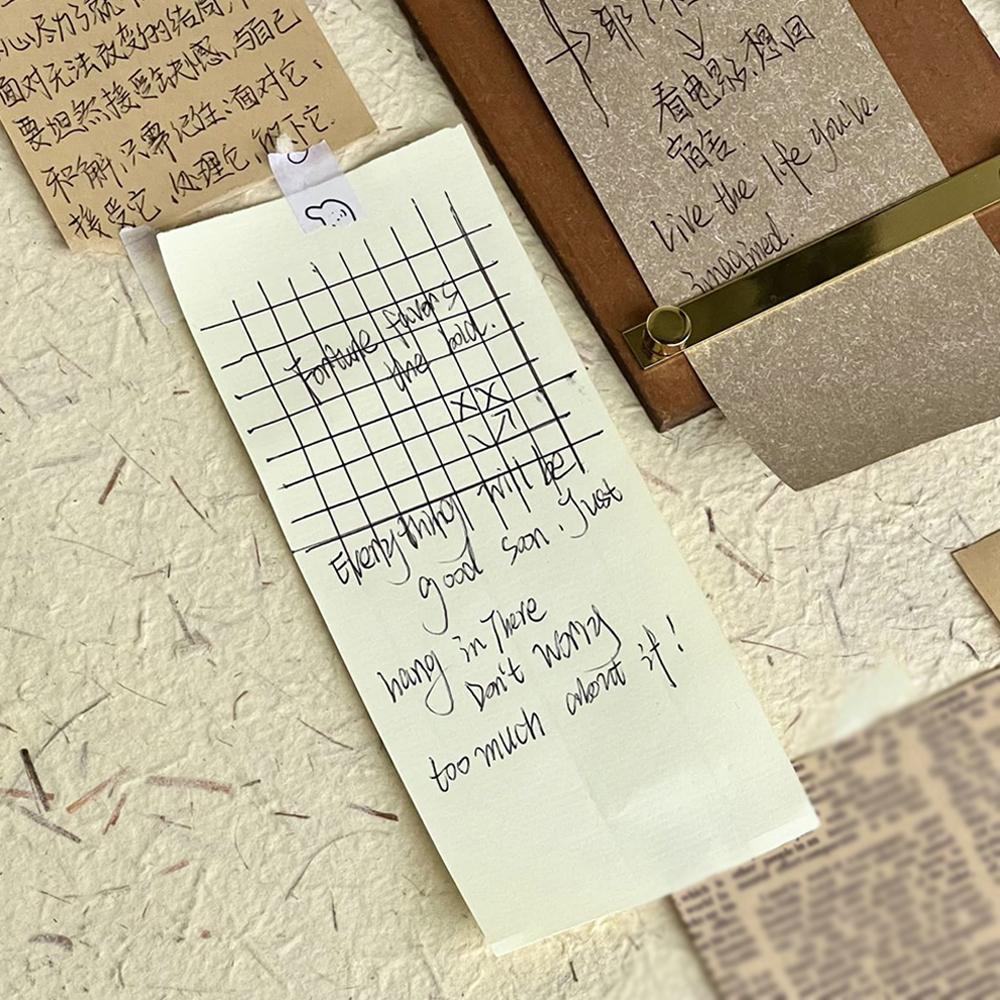 尽力了就
面对无法改变的结局,
要坦然接受缺憾,与自己
和解,只需记住:面对它、
接受它、处理它、放下它.
看电影.想回
宿舍.
Live the life you've
imagined.
Fortune favors
the bold.
XX
Everything will be
good soon. Just
hang in There
Don't worry
too much about it!